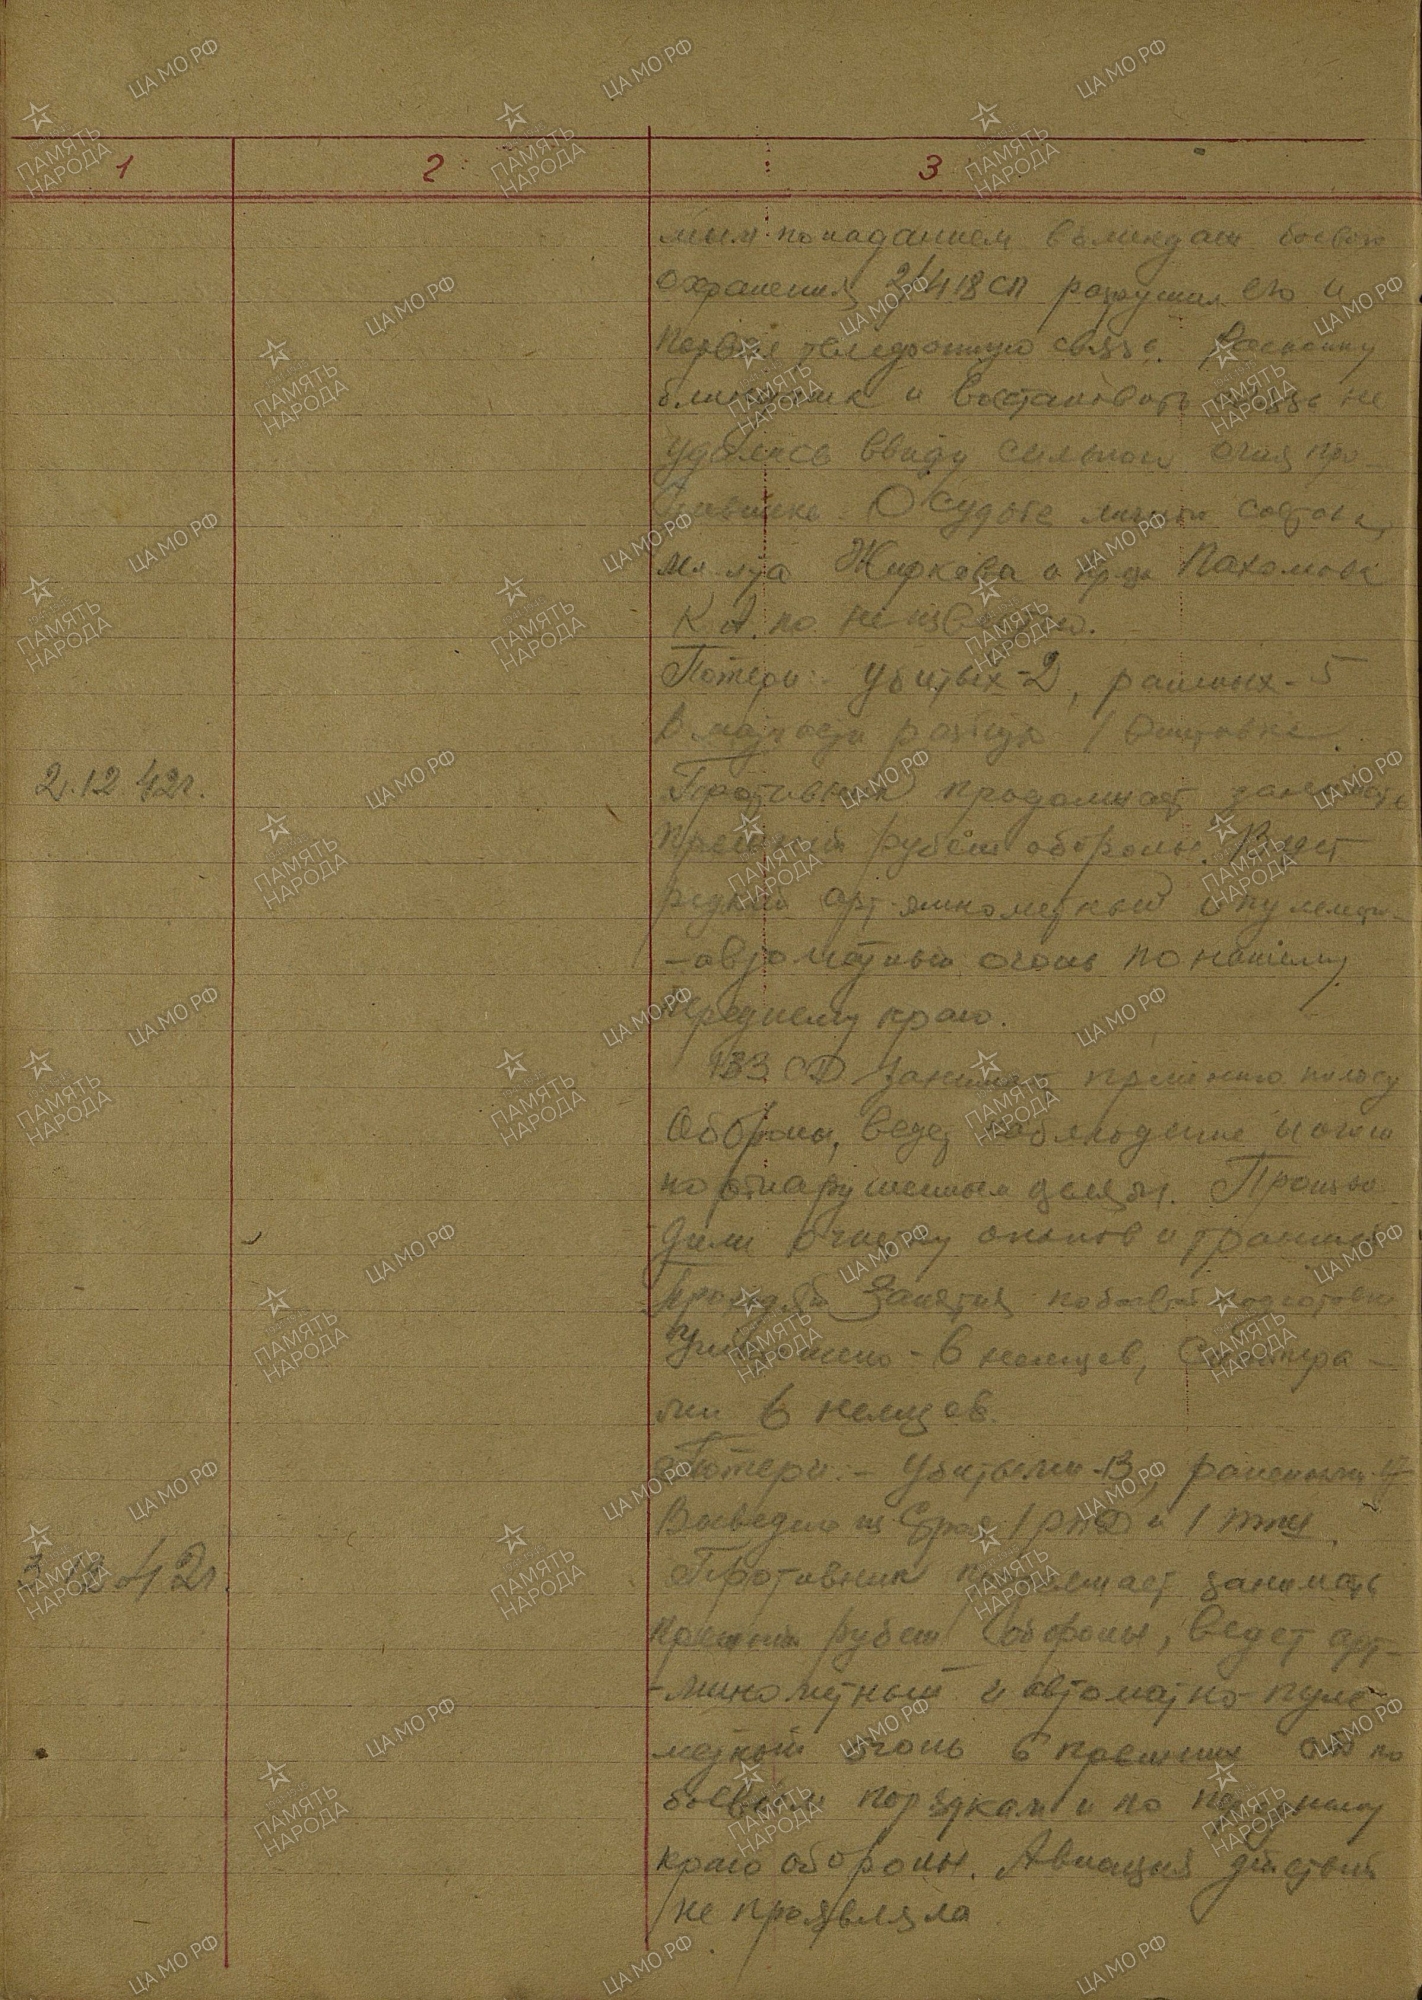 1 2 3
мым попаданием в блиндаж боевого
охранения 2/418 сп разрушил его и
порвал телефонную связь. Раскопку
блиндажа и востановить связь не
удалось ввиду сильного огня про-
тивника О судьбе личного состава,
мл л-та Жиркова и кр-ца Пахомова
К.А. по неизвестно.
Потери:- убитых-2, раненых-5
В матчасти разбита 1 винтовка
2.12 42г. Противник продолжает занимать
прежний рубеж обороны. Ведет
редкий арт-минометный и пулеметн-
-автоматный огонь по нашему
переднему краю.
133 СД занимает прежнюю полосу
обороны, ведет наблюдение и огонь
по обнаруженным целям. Произво
дили очистку окопов и траншей
Проводят занятия по боевой подготовке
Уничтожено - 6 немцев, Снайпера-
ми 6 немцев.
Потери:- убитыми-13, ранеными-17
Выведено из строя 1 РПД и 1
3.12 42г. Противник продолжает занимать
прежний рубеж обороны, ведет арт-
-минометный и автоматно-пуле
метный огонь с прежних ОП по
боевым порядкам и по переднему
краю обороны. Авиация действий
не проявляла